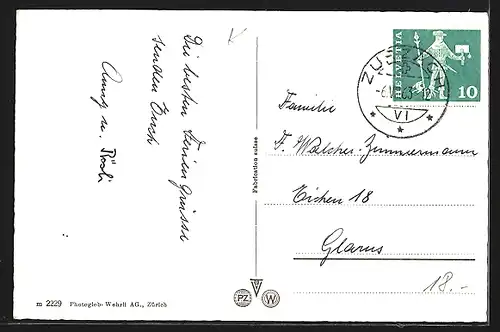 K
Die besten Feriengrüsse
senden Euch
Anny u. Rösli
HELVETIA
10
VI
Familie
F. Walcher-Zimmermann
Eichen 18
Glarus
18.-
Fabrication suisse
PZ W
m 2229 Photogleb-Wehrli AG., Zürich